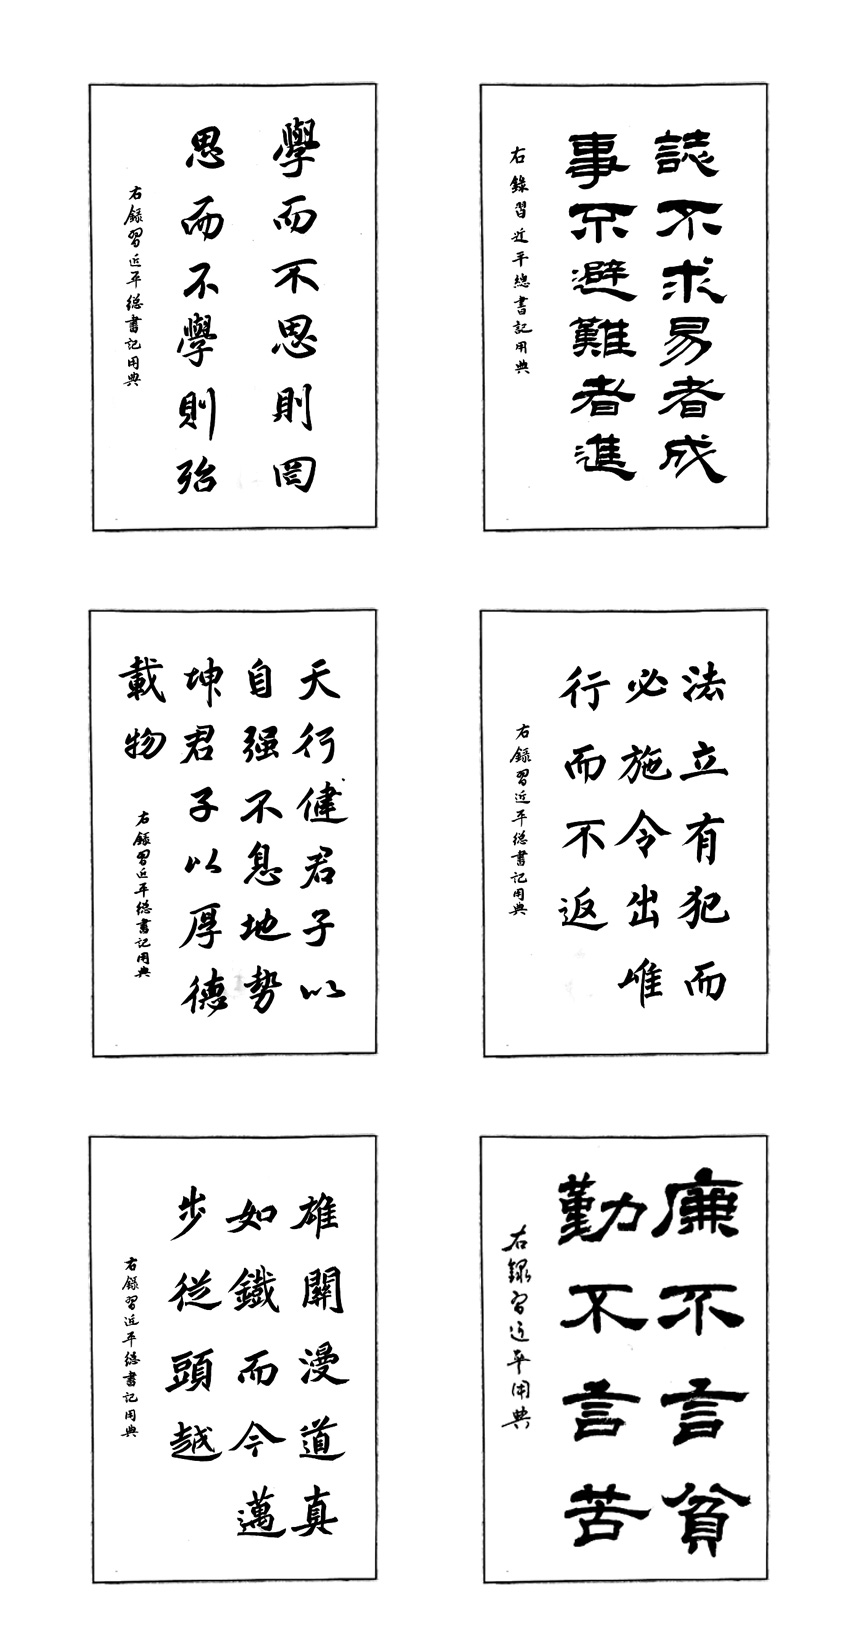 學而不思則罔
思而不學則殆
右録習近平總書記用典
誌不求易者成
事不避難者進
右錄習近平總書記用典
天行健君子以
自强不息地勢
坤君子以厚德
載物
右録習近平總書記用典
法立有犯而
必施令出唯
行而不返
右録習近平總書記用典
雄關漫道真
如鐵而今邁
步從頭越
右録習近平總書記用典
廉不言貧
勤不言苦
右録習近平用典